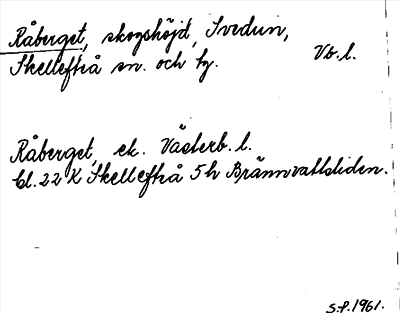 Råberget, skogshöjd, Svedun,
Skellefteå sn. och tg. Vb.l.
Råberget, ek. Västerb. l.
bl. 22 K Skellefteå 5 h Brännvattsliden.
S.P. 1961.